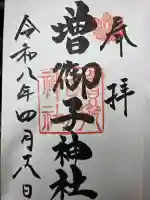 奉拝
増御子神社
令和八年四月八日